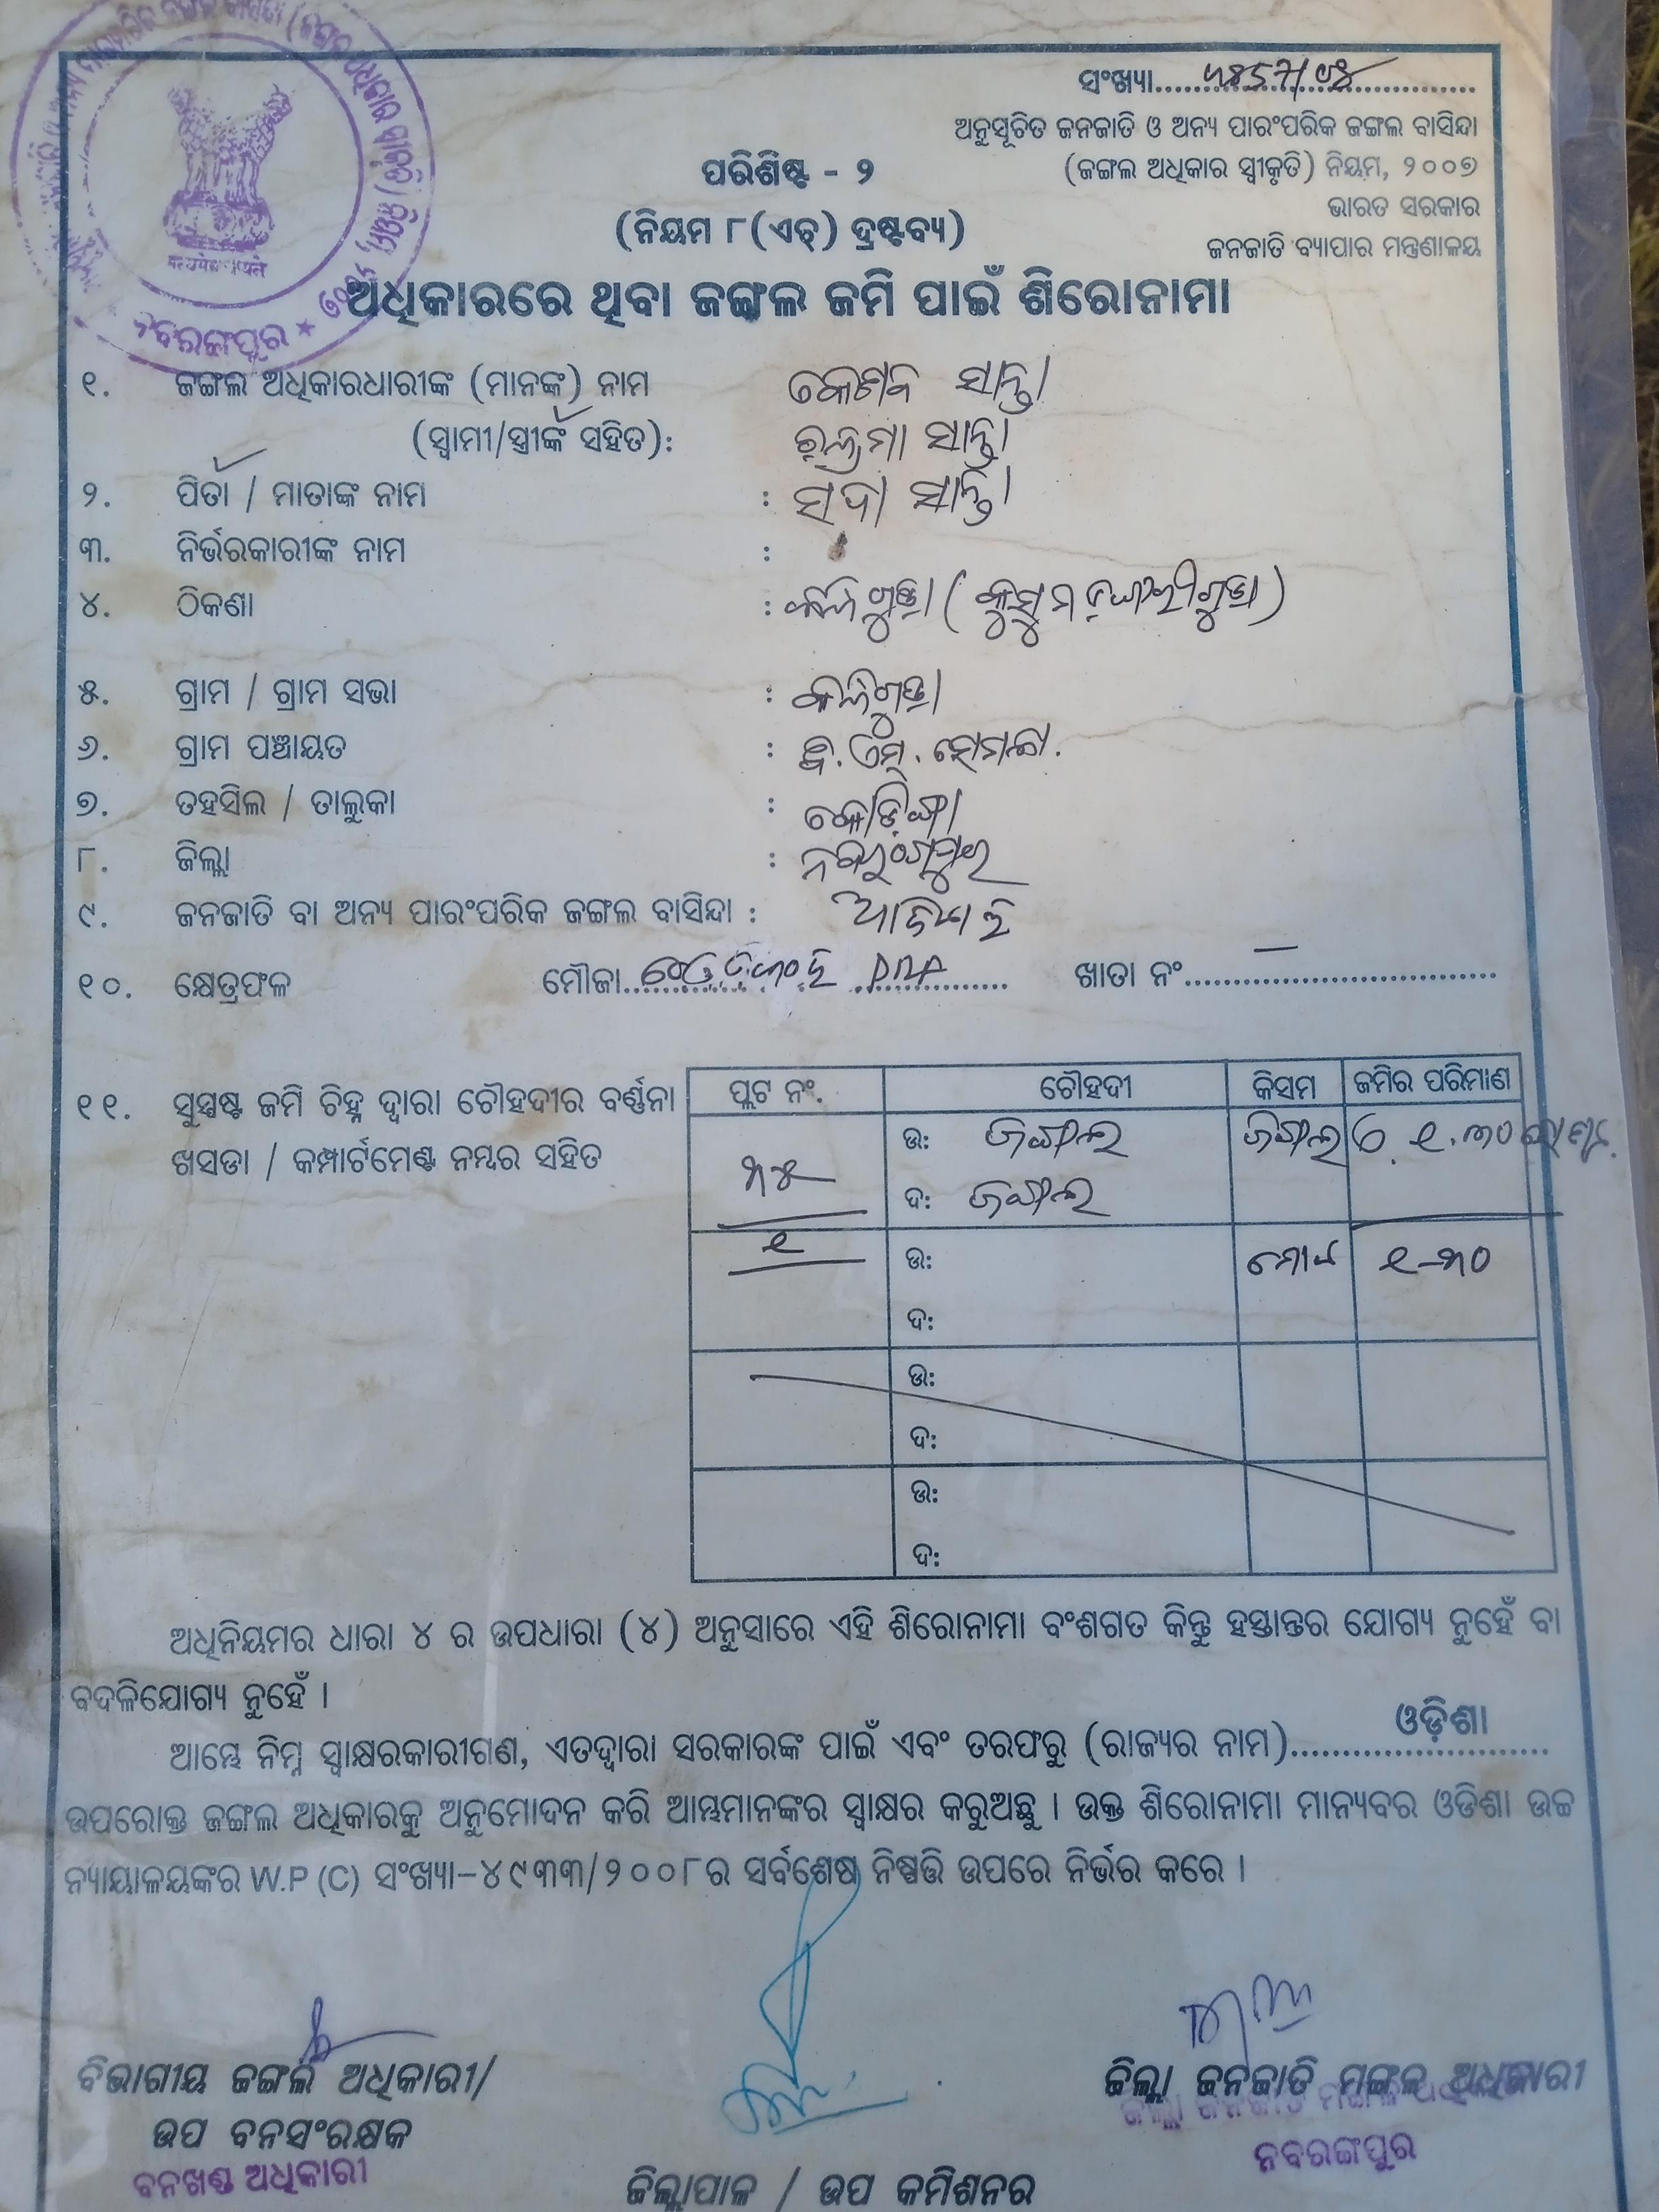 ସଂଖ୍ୟା
ଅନୁସୂଚିତ ଜନଜାତି ଓ ଅନ୍ୟ ପାରଂପରିକ ଜଙ୍ଗଲ ବାସିନ୍ଦା
(ଜଙ୍ଗଲ ଅଧିକାର ସ୍ୱୀକୃତି) ନିୟମ, ୨୦୦୭
ଭାରତ ସରକାର
ଜନଜାତି ବ୍ୟାପାର ମନ୍ତ୍ରଣାଳୟ
ପରିଶିଷ୍ଟ - ୨
(ନିୟମ ୮(ଏଚ୍) ଦ୍ରଷ୍ଟବ୍ୟ)
ଅଧିକାରରେ ଥିବା ଜଙ୍ଗଲ ଜମି ପାଇଁ ଶିରୋନାମା
୧. ଜଙ୍ଗଲ ଅଧିକାରଧାରୀଙ୍କ (ମାନଙ୍କ) ନାମ ସାନ୍ତା
(ସ୍ୱାମୀ/ସ୍ତ୍ରୀଙ୍କ ସହିତ): ସାନ୍ତା
୨. ପିତା / ମାତାଙ୍କ ନାମ : ସଦା ସାନ୍ତା
୩. ନିର୍ଭରକାରୀଙ୍କ ନାମ :
୪. ଠିକଣା :
୫. ଗ୍ରାମ / ଗ୍ରାମ ସଭା :
୬. ଗ୍ରାମ ପଞ୍ଚାୟତ :
୭. ତହସିଲ / ତାଲୁକା : କୋଡ଼ିଙ୍ଗା
୮. ଜିଲ୍ଲା : ନବରଂଗପୁର
୯. ଜନଜାତି ବା ଅନ୍ୟ ପାରଂପରିକ ଜଙ୍ଗଲ ବାସିନ୍ଦା : ଆଦିବାସୀ
୧୦. କ୍ଷେତ୍ରଫଳ ମୌଜା ଖାତା ନଂ
୧୧. ସୁସ୍ପଷ୍ଟ ଜମି ଚିହ୍ନ ଦ୍ୱାରା ଚୌହଦୀର ବର୍ଣ୍ଣନା
ଖସଡା / କମ୍ପାର୍ଟମେଣ୍ଟ ନମ୍ବର ସହିତ
ପ୍ଲଟ ନଂ. ଚୌହଦୀ କିସମ ଜମିର ପରିମାଣ
ଉ: ଜଙ୍ଗଲ ଜଙ୍ଗଲ
ଦ: ଜଙ୍ଗଲ
୧ ଉ: ମୋଟ ୧-୩୦
ଦ:
ଉ:
ଦ:
ଉ:
ଦ:
ଅଧିନିୟମର ଧାରା ୪ ର ଉପଧାରା (୪) ଅନୁସାରେ ଏହି ଶିରୋନାମା ବଂଶଗତ କିନ୍ତୁ ହସ୍ତାନ୍ତର ଯୋଗ୍ୟ ନୁହେଁ ବା
ବଦଳିଯୋଗ୍ୟ ନୁହେଁ ।
ଆମ୍ଭେ ନିମ୍ନ ସ୍ୱାକ୍ଷରକାରୀଗଣ, ଏତଦ୍ୱାରା ସରକାରଙ୍କ ପାଇଁ ଏବଂ ତରଫରୁ (ରାଜ୍ୟର ନାମ) ଓଡ଼ିଶା
ଉପରୋକ୍ତ ଜଙ୍ଗଲ ଅଧିକାରକୁ ଅନୁମୋଦନ କରି ଆମ୍ଭମାନଙ୍କର ସ୍ୱାକ୍ଷର କରୁଅଛୁ । ଉକ୍ତ ଶିରୋନାମା ମାନ୍ୟବର ଓଡିଶା ଉଚ୍ଚ
ନ୍ୟାୟାଳୟଙ୍କର W.P (C) ସଂଖ୍ୟା-୪୯୩୩/୨୦୦୮ର ସର୍ବଶେଷ ନିଷ୍ପତ୍ତି ଉପରେ ନିର୍ଭର କରେ ।
ବିଭାଗୀୟ ଜଙ୍ଗଲ ଅଧିକାରୀ/
ଉପ ବନସଂରକ୍ଷକ
ବନଖଣ୍ଡ ଅଧିକାରୀ
ଜିଲ୍ଲାପାଳ / ଉପ କମିଶନର
ଜିଲ୍ଲା ଜନଜାତି ମଙ୍ଗଳ ଅଧିକାରୀ
ଜିଲ୍ଲା ଜନଜାତି ମଙ୍ଗଳ ଅଧିକାରୀ
ନବରଙ୍ଗପୁର